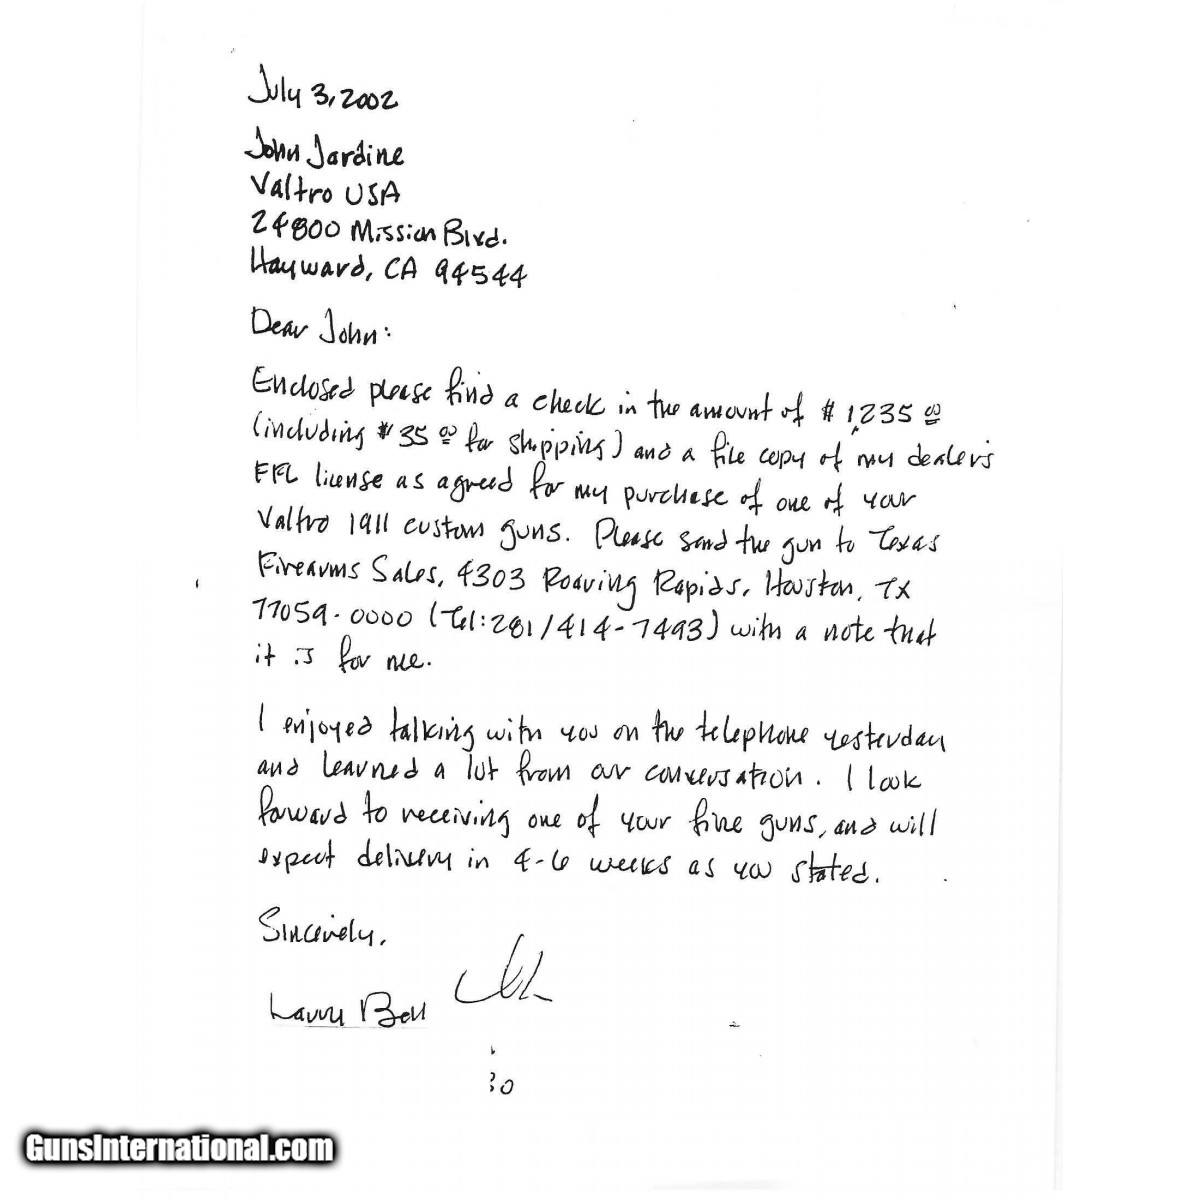 July 3, 2002
John Jardine
Valtro USA
24800 Mission Blvd.
Hayward, CA 94544
Dear John:
Enclosed please find a check in the amount of $1,235 00
(including $35 00 for shipping) and a file copy of my dealer's
FFL license as agreed for my purchase of one of your
Valtro 1911 custom guns. Please send the gun to Texas
Firearms Sales, 4303 Roaring Rapids, Houston, TX
77059-0000 (Tel: 281/414-7493) with a note that
it is for me.
I enjoyed talking with you on the telephone yesterday
and learned a lot from our conversation. I look
forward to receiving one of your fine guns, and will
expect delivery in 4-6 weeks as you stated.
Sincerely,
Larry Bell
GunsInternational.com